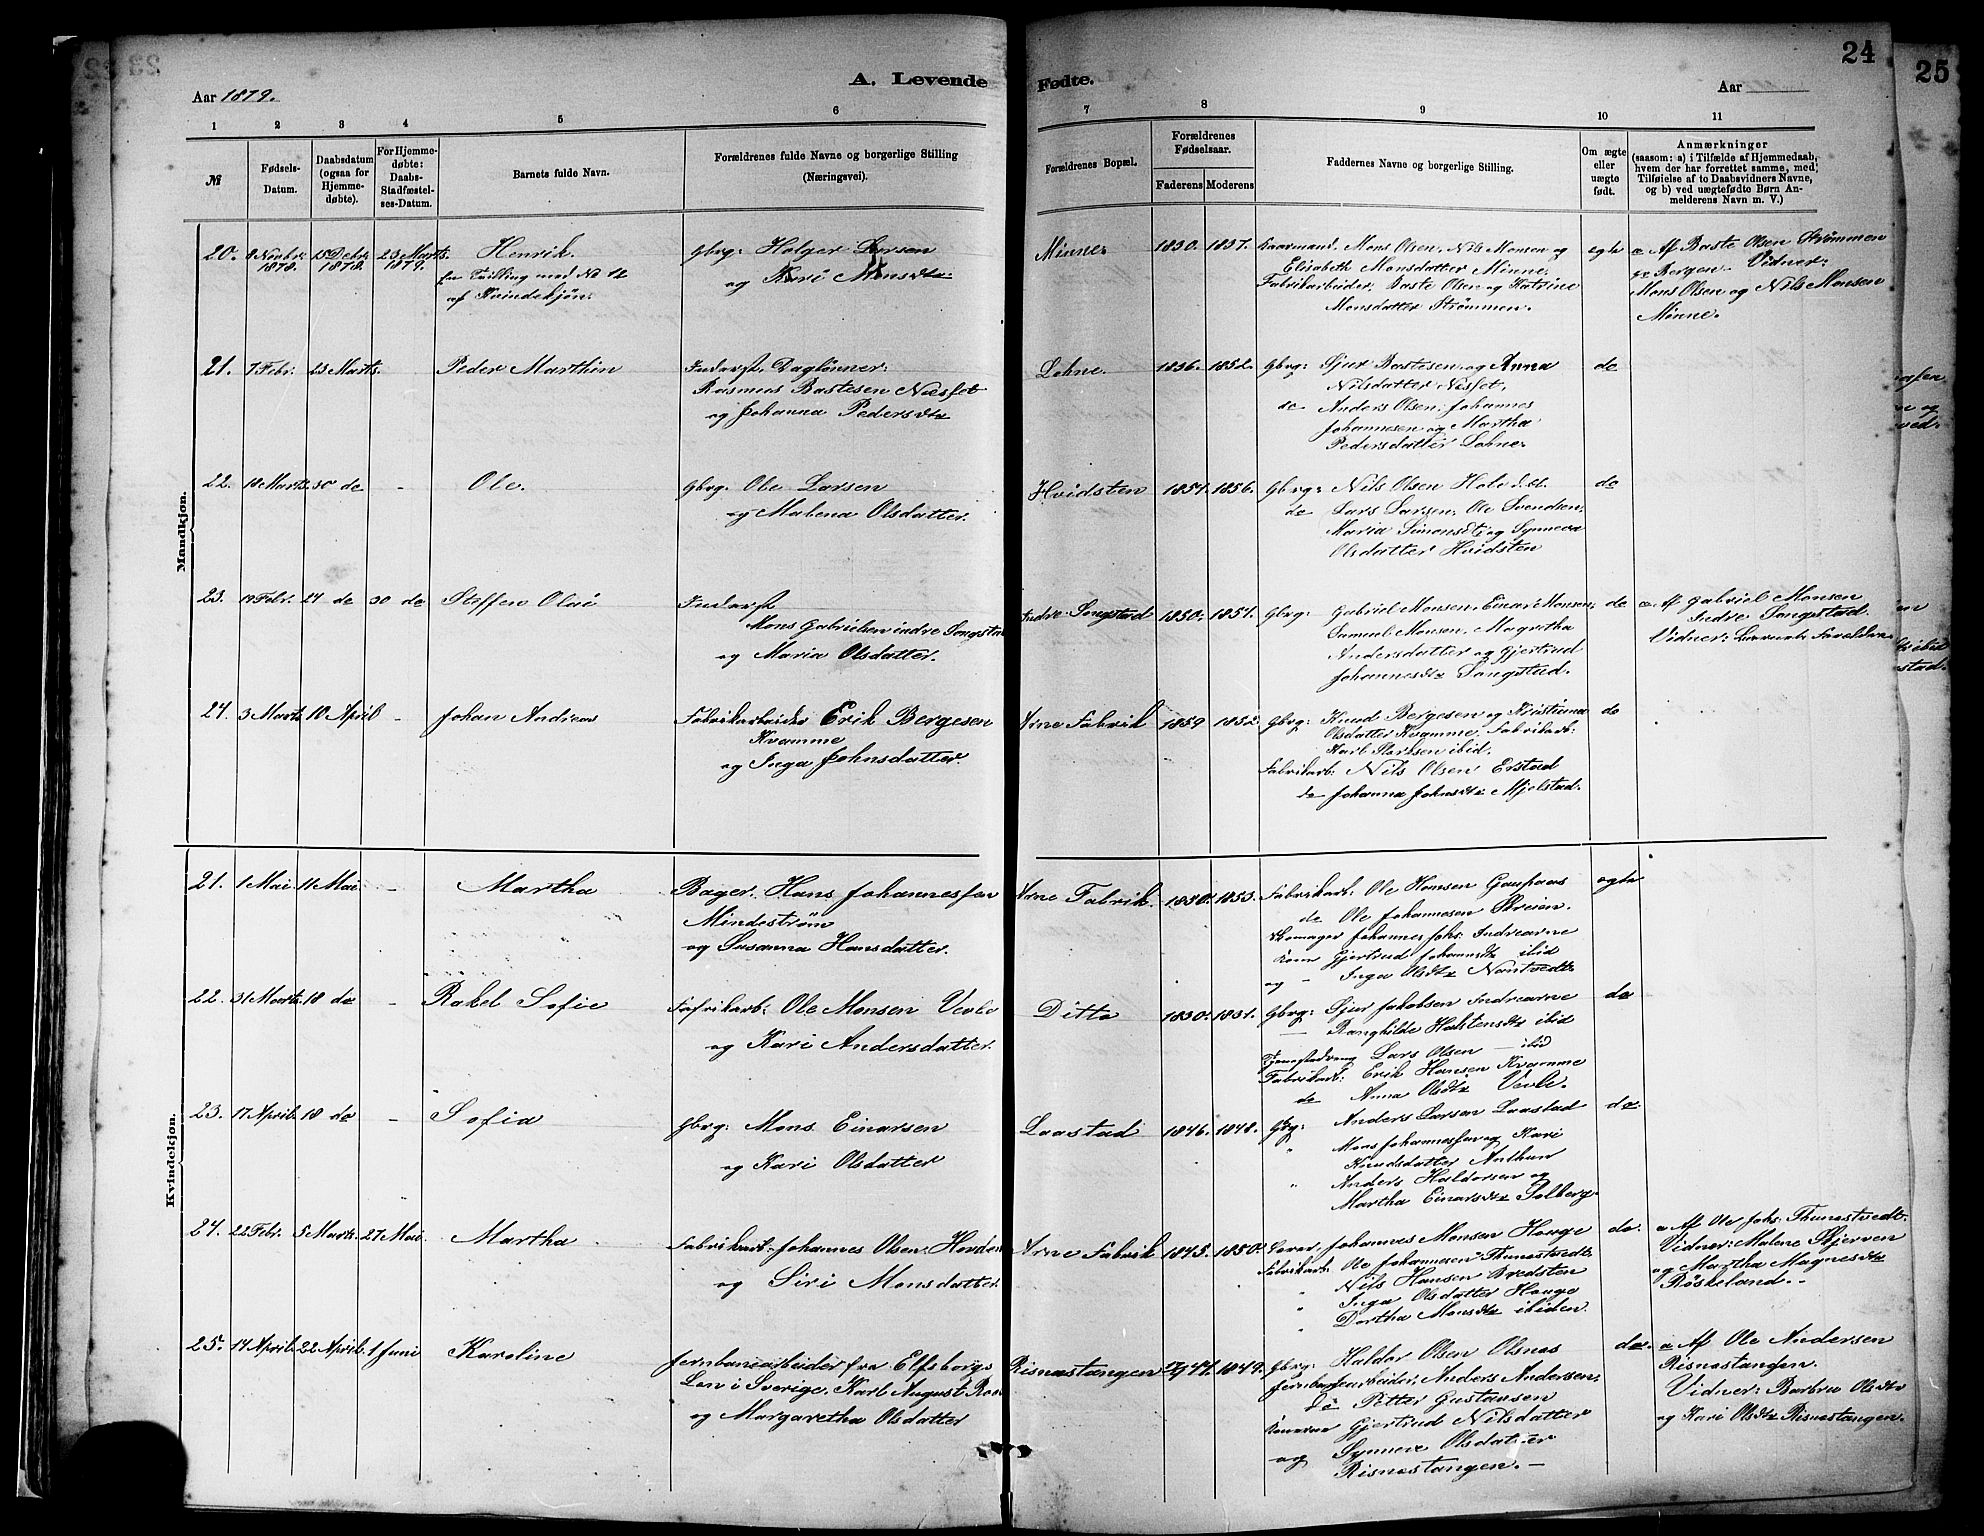 24
25
A. Levende
Fødte.
Aar 1879.
Aar
1 2 3 4 5 6 7 8 9 10 11
№
Fødsels-
Datum.
Daabsdatum
(ogsaa for
Hjemme-
døbte).
For Hjemme-
døbte:
Daabs-
Stadfæstel-
ses-Datum.
Barnets fulde Navn.
Forældrenes fulde Navne og borgerlige Stilling
(Næringsvei).
Forældrenes Bopæl.
Forældrenes
Fødselsaar.
Faderens
Moderens
Faddernes Navne og borgerlige Stilling.
Om ægte
eller
uægte
født.
Anmærkninger
(saasom: a) i Tilfælde af Hjemmedaab,
hvem der har forrettet samme, med
Tilføielse af to Daabsvidners Navne,
og b) ved uægtefødte Børn An-
melderens Navn m. V.)
Mandkjøn.
20.
15 Debr.
1878.
23 Marts.
1879.
Henrik.
en Tvilling med No 12
af Kvindekjøn.
Gbrg: Holger Larsen
og Kari Monsdtr
Minne
1830. 1837.
Mons Olsen, Nils Monsen og
Elisabeth Monsdatter Minne,
Fabrikarbeider: Baste Olsen og Katrine
Monsdatter Strømmen.
egte
a Af Baste Olsen Strømmen
Bergen. Vidner:
Mons Olsen og Nils Monsen
Minne.
21. 7 Febr. 23 Marts.
Peder Marthin
Inderst, Dagløner:
Rasmus Bastesen Næsset
og Johanna Pedersdtr
Lohne. 1836. 1852.
Gbrg: Sjur Bastesen og Anna
Nilsdatter Næsset,
do Anders Olsen, Johannes
Johannesen og Martha
Pedersdatter Lohne.
do
22. 18 Marts 30 do -
Ole.
Gbrg. Ole Larsen
og Malena Olsdatter.
Hvidsten 1851. 1856.
Gbrg: Nils Olsen Hole
do Lars Larsen, Ole Svendsen,
Maria Simonsdtr og Synneva
Olsdatter Hvidsten
do
23. 19 Febr. 24 do 30 do
Steffen Olai
Inderst
Mons Gabrielsen indre Songstad
og Maria Olsdatter.
Indre Songstad 1850. 1851.
Gbrg: Gabriel Monsen, Einar Monsen,
Samuel Monsen, Magretha
Andersdatter og Gjertrud
Johannesdtr Songstad.
do
a. Af Gabriel Monsen
Indre Songstad.
Vidner: Barnets Forældre
24. 3 Marts 10 April -
Johan Andreas
Fabrikarbeider Erik Bergesen
Kvamme
og Inga Johnsdatter.
Arne Fabrik 1859 1852
Gbrg: Knud Bergesen og Kristiana
Olsdatter Kvamme, Fabrikarb:
Karl Larsen ibid.
Fabrikarb: Nils Olsen Erstad
do Johanna Johnsdtr Mjelstad.
do
Kvindekjøn.
21. 1 Mai. 11 Mai. -
Martha
Bager. Hans Johannessen
Mindestrøm
og Susanna Hansdatter.
Arne Fabrik. 1850. 1853.
Fabrikarb: Ole Hansen Gaupaas
do Ole Johannesen Skreien.
Skomager Johannes Johs: Indrearne
Kone Gjertrud Johannsdtr ibid
og - Inga Olsdtr Nontvedt
egte
22. 31 Marts 18 do -
Rakel Sofie
Fafrikarb: Ole Monsen Vevle
og Kari Andersdatter.
Ditto 1830. 1831.
Gbrg: Sjur Jakobsen Indrearne
Ranghilde Halstensdtr ibid
Tjenestedreng Lars Olsen - ibid
Fabrikarb: Erik Hansen Kvamme
do Anna Olsdtr Vevle.
do
23. 17 April 18 do -
Sofia
Gbrg: Mons Einarsen
og Kari Olsdatter
Laastad 1846. 1848.
Gbrg: Anders Larsen Laastad
" Mons Johannessen og Kari
Knudsdatter Anthun
" Anders Haldorsen og
Martha Einarsdtr Solberg.
do
24. 22 Febr. 5 Marts. 27 Mai.
Martha
Fabrikarb. Johannes Olsen Hovden
og Siri Monsdatter.
Arne Fabrik 1845. 1850.
Johannes Monsen Houge
Fabrikarb: Ole Johannesen Thunestvedt.
" Nils Hansen Bredsten
" Inga Olsdatter Houge
" Dortha Monsdtr ibiden.
do.
a Af Ole Johs: Thunestvedt.
Vidner: Malene Skjerven
og Martha Magnesdtr
Røskeland. -
25. 14 April 22 April. 1 Juni
Karoline
Jernbanearbeider fra Elfsborgs
Len i Sverige, Karl August
og Margaretha Olsdatter
Risnæstangen 1849.
Gbrg: Haldor Olsen Olsnæs
Jernbanearbeider, Anders Andersen,
do Petter Gustavsen
Konerne Gjertrud Nilsdatter
og Synneve Olsdatter
Risnæstangen. -
do.
a. Af Ole Andersen
Risnæstangen.
Vidner: Barbra Olsdtr
og Kari Olsdtr Risnæstangen.